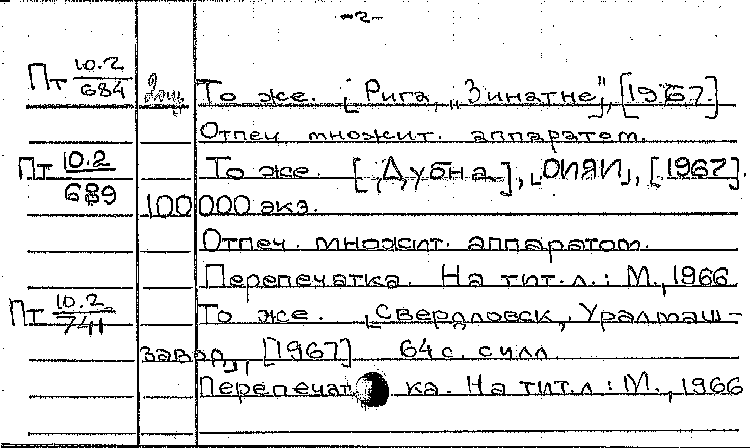 -2-
Пт 10.2
684 То же. [Рига, „Зинатне", [1967.]
Отпеч множит. аппаратом.
Пт 10.2
689 То же. [Дубна], [ОИЯИ], [1967].
100 000 экз.
Отпеч. множит. аппаратом.
Перепечатка. На тит.л.: М., 1966
Пт 10.2
7411 То же. [Свердловск, Уралмаш-
завод], [1967] 64 с. с илл.
Перепечатка. На тит.л: М., 1966